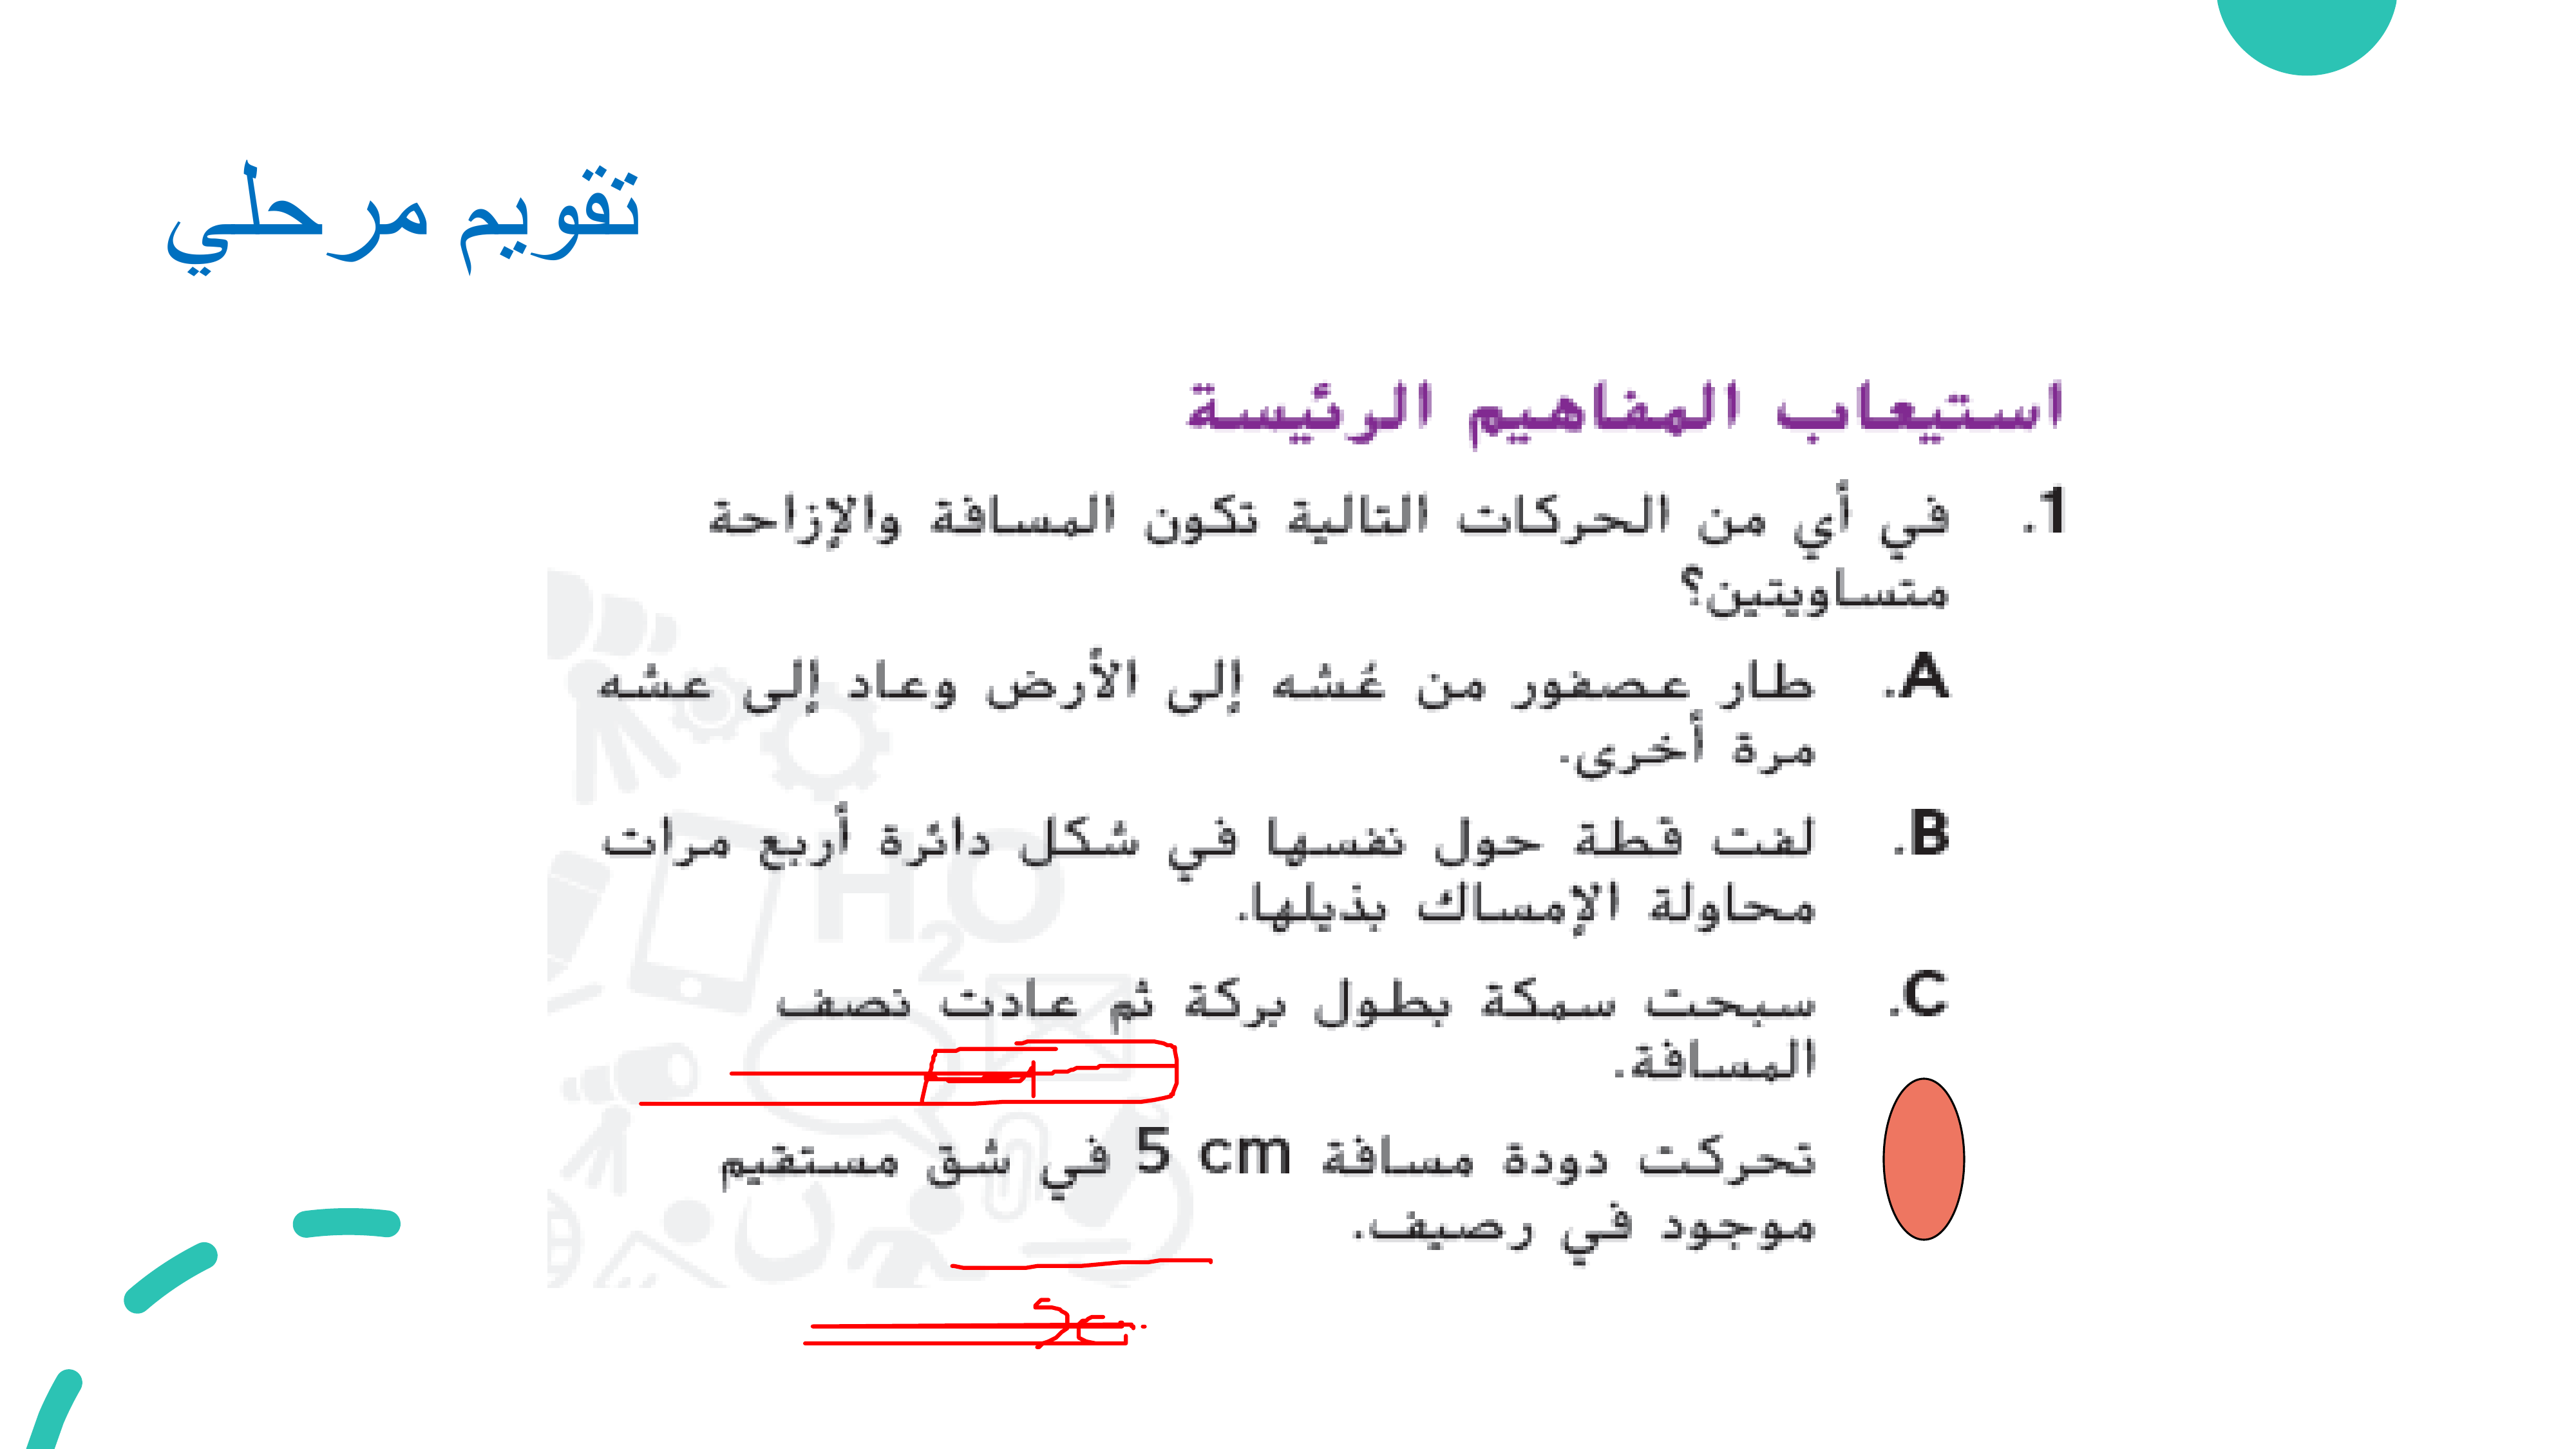 تقويم مرحلي
استيعاب المفاهيم الرئيسة
1. في أي من الحركات التالية تكون المسافة والإزاحة
متساويتين؟
A. طار عصفور من عُشه إلى الأرض وعاد إلى عشه
مرة أخرى.
B. لفت قطة حول نفسها في شكل دائرة أربع مرات
محاولة الإمساك بذيلها.
C. سبحت سمكة بطول بركة ثم عادت نصف
المسافة.
تحركت دودة مسافة 5 cm في شق مستقيم
موجود في رصيف.
H2O